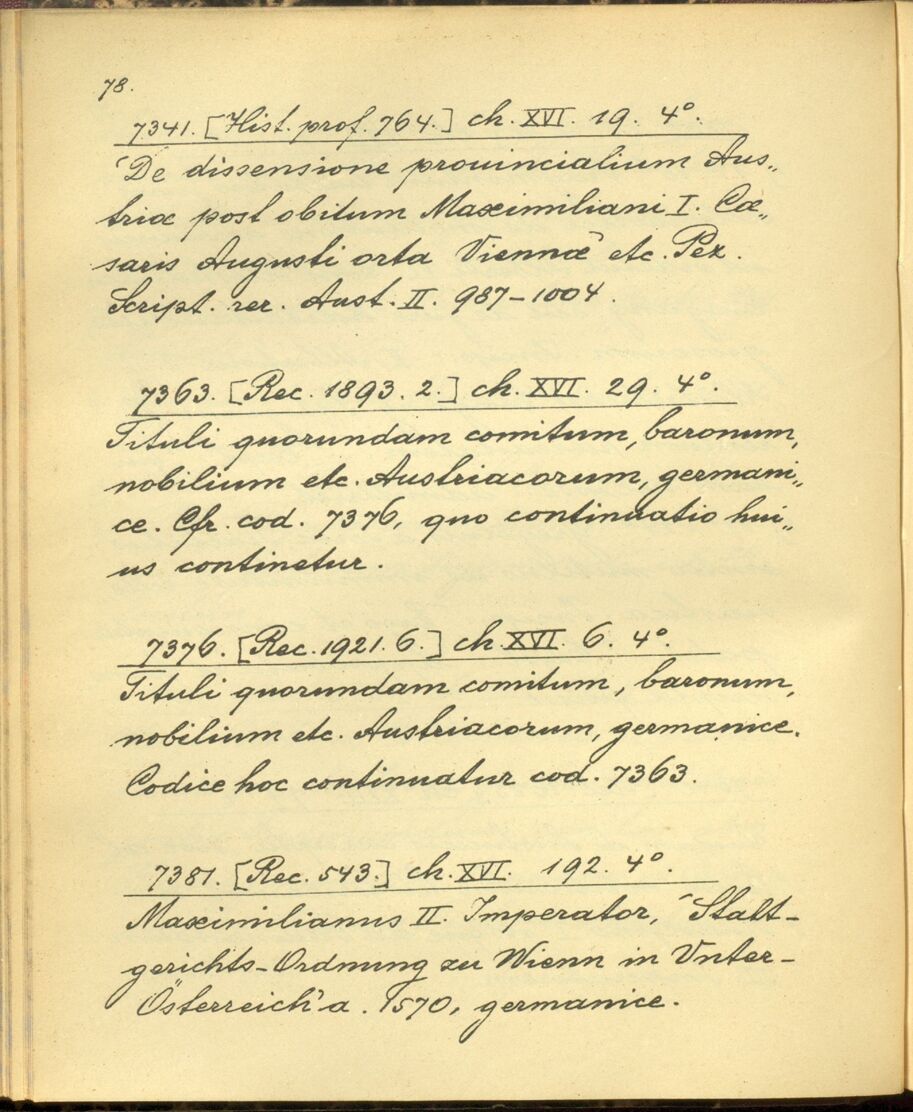 78.
7341. [Hist. prof. 764.] ch. XVI. 19. 4°.
'De dissensione prouincialium Aus„
triæ post obitum Maximiliani I. Cæ„
saris Augusti orta Viennæ' etc. Pez.
Script. rer. Aust. II. 987-1004.
7363. [Rec. 1893. 2.] ch. XVI. 29. 4°.
Tituli quorundam comitum, baronum,
nobilium etc. Austriacorum, germani„
ce. Cfr. cod. 7376, quo continuatio hui„
us continetur.
7376. [Rec. 1921. 6.] ch. XVI. 6. 4°.
Tituli quorundam comitum, baronum,
nobilium etc. Austriacorum, germanice.
Codice hoc continuatur cod. 7363.
7381. [Rec. 543.] ch. XVI. 192. 4°.
Maximilianus II. Imperator, 'Statt-
gerichts-Ordnung zu Wienn in Vnter-
Österreich' a. 1570, germanice.